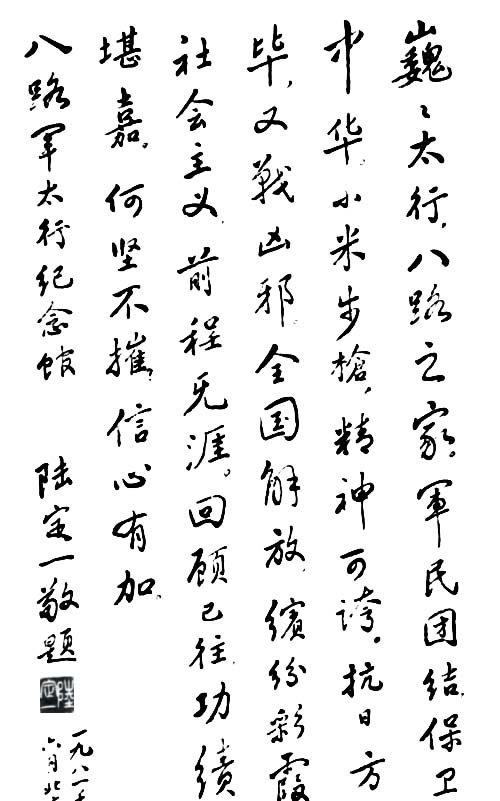 巍〻太行，八路之家。軍民团结，保卫
中华。小米步槍，精神可誇。抗日方
毕，又戰凶邪。全国解放，缤纷彩霞
社会主义，前程无涯。回顾已往，功绩
堪嘉。何坚不摧，信心有加。
八路军太行纪念馆 陆定一敬题
陸定一
一九八一
六月北